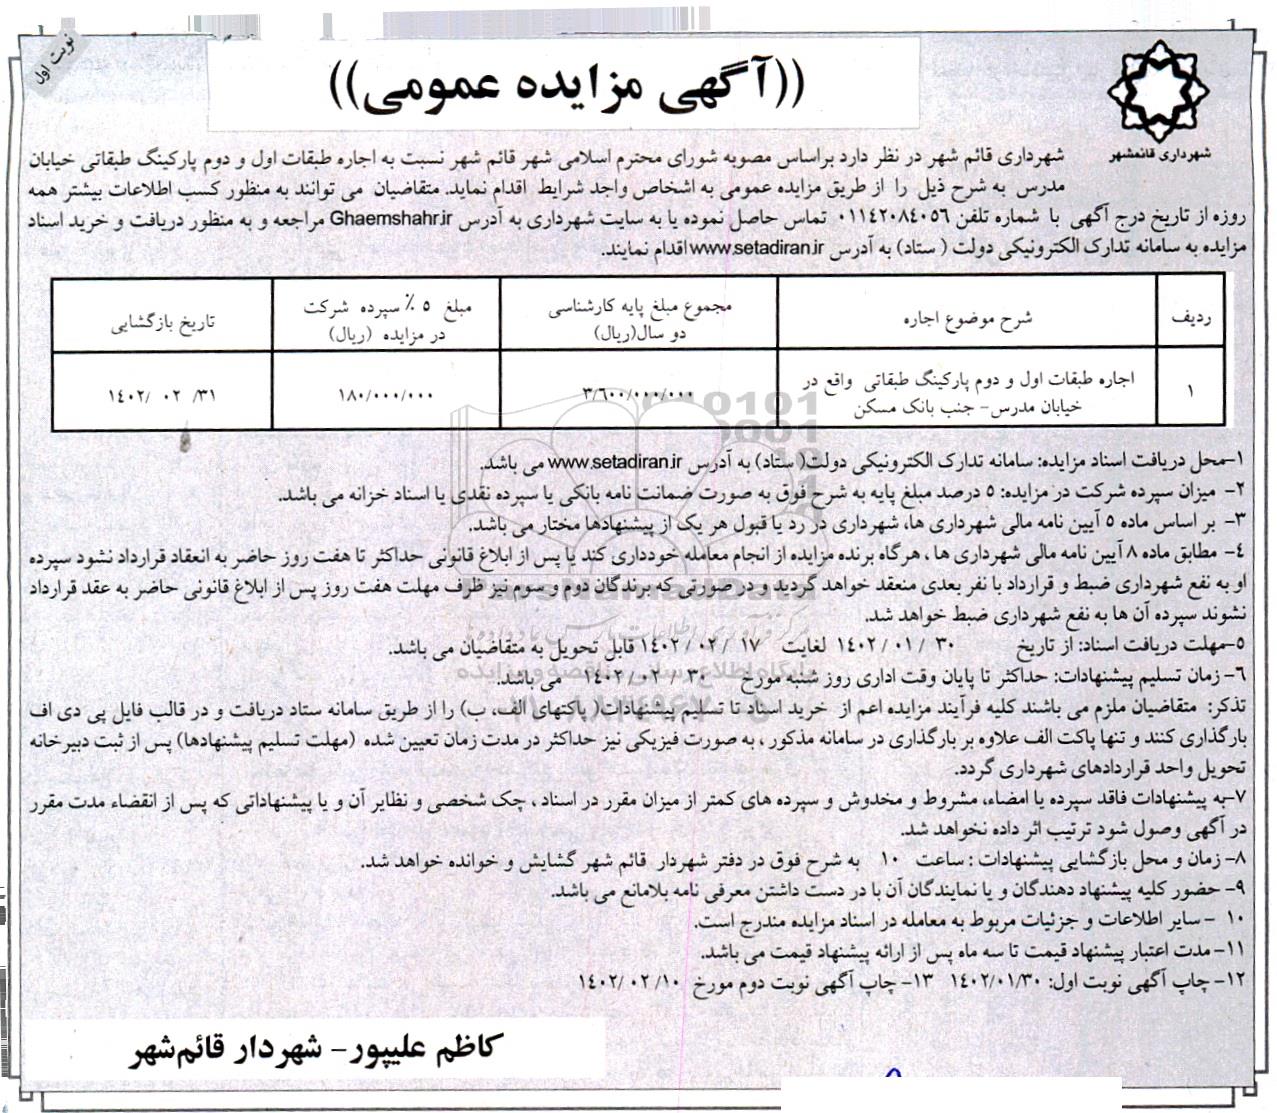 نوبت اول
((آگهی مزایده عمومی))
شهرداری قائمشهر
شهرداری قائم شهر در نظر دارد براساس مصوبه شورای محترم اسلامی شهر قائم شهر نسبت به اجاره طبقات اول و دوم پارکینگ طبقاتی خیابان
مدرس به شرح ذیل را از طریق مزایده عمومی به اشخاص واجد شرایط اقدام نماید. متقاضیان می توانند به منظور کسب اطلاعات بیشتر همه
روزه از تاریخ درج آگهی با شماره تلفن ۰۱۱۴۲۰۸۴۰۵۶ تماس حاصل نموده یا به سایت شهرداری به آدرس Ghaemshahr.ir مراجعه و به منظور دریافت و خرید اسناد
مزایده به سامانه تدارک الکترونیکی دولت ( ستاد) به آدرس www.setadiran.ir اقدام نمایند.
ردیف | شرح موضوع اجاره | مجموع مبلغ پایه کارشناسی دو سال(ریال) | مبلغ ۵ ٪ سپرده شرکت در مزایده (ریال) | تاریخ بازگشایی
۱ | اجاره طبقات اول و دوم پارکینگ طبقاتی واقع در خیابان مدرس- جنب بانک مسکن | ۳/۶۰۰/۰۰۰/۰۰۰ | ۱۸۰/۰۰۰/۰۰۰ | ۱۴۰۲/ ۰۲ /۳۱
۱-محل دریافت اسناد مزایده: سامانه تدارک الکترونیکی دولت( ستاد) به آدرس www.setadiran.ir می باشد.
۲- میزان سپرده شرکت در مزایده: ۵ درصد مبلغ پایه به شرح فوق به صورت ضمانت نامه بانکی یا سپرده نقدی یا اسناد خزانه می باشد.
۳- بر اساس ماده ۵ آیین نامه مالی شهرداری ها، شهرداری در رد یا قبول هر یک از پیشنهادها مختار می باشد.
۴- مطابق ماده ۸ آیین نامه مالی شهرداری ها ، هرگاه برنده مزایده از انجام معامله خودداری کند یا پس از ابلاغ قانونی حداکثر تا هفت روز حاضر به انعقاد قرارداد نشود سپرده
او به نفع شهرداری ضبط و قرارداد با نفر بعدی منعقد خواهد گردید و در صورتی که برندگان دوم و سوم نیز ظرف مهلت هفت روز پس از ابلاغ قانونی حاضر به عقد قرارداد
نشوند سپرده آن ها به نفع شهرداری ضبط خواهد شد.
۵-مهلت دریافت اسناد: از تاریخ ۳۰ / ۰۱/ ۱۴۰۲ لغایت ۱۷ / ۰۲/ ۱۴۰۲ قابل تحویل به متقاضیان می باشد.
۶- زمان تسلیم پیشنهادات: حداکثر تا پایان وقت اداری روز شنبه مورخ ۳۰ / ۰۲/ ۱۴۰۲ می باشد.
تذکر: متقاضیان ملزم می باشند کلیه فرآیند مزایده اعم از خرید اسناد تا تسلیم پیشنهادات( پاکتهای الف، ب) را از طریق سامانه ستاد دریافت و در قالب فایل پی دی اف
بارگذاری کنند و تنها پاکت الف علاوه بر بارگذاری در سامانه مذکور ، به صورت فیزیکی نیز حداکثر در مدت زمان تعیین شده (مهلت تسلیم پیشنهادها) پس از ثبت دبیرخانه
تحویل واحد قراردادهای شهرداری گردد.
۷-به پیشنهادات فاقد سپرده یا امضاء، مشروط و مخدوش و سپرده های کمتر از میزان مقرر در اسناد ، چک شخصی و نظایر آن و یا پیشنهاداتی که پس از انقضاء مدت مقرر
در آگهی وصول شود ترتیب اثر داده نخواهد شد.
۸- زمان و محل بازگشایی پیشنهادات : ساعت ۱۰ به شرح فوق در دفتر شهردار قائم شهر گشایش و خوانده خواهد شد.
۹- حضور کلیه پیشنهاد دهندگان و یا نمایندگان آن با در دست داشتن معرفی نامه بلامانع می باشد.
۱۰ - سایر اطلاعات و جزئیات مربوط به معامله در اسناد مزایده مندرج است.
۱۱- مدت اعتبار پیشنهاد قیمت تا سه ماه پس از ارائه پیشنهاد قیمت می باشد.
۱۲- چاپ آگهی نوبت اول: ۱۴۰۲/۰۱/۳۰ ۱۳- چاپ آگهی نوبت دوم مورخ ۱۴۰۲/ ۰۲/ ۱۰
کاظم علیپور- شهردار قائم‌شهر